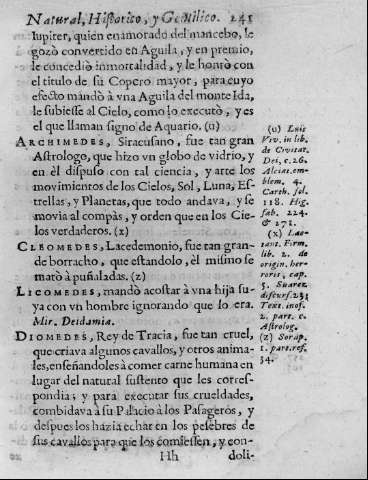 Natural, Historico, y Gentilico. 241
Iupiter, quien enamorado del mancebo, le
gozò convertido en Aguila, y en premio,
le concediò inmortalidad, y le honrò con
el titulo de su Copero mayor, para cuyo
efecto mandò à vna Aguila del monte Ida,
le subiesse al Cielo, como lo executò, y es
el que llaman signo de Aquario. (u)
ARCHIMEDES, Siracusano, fue tan gran
Astrologo, que hizo vn globo de vidrio, y
en èl dispuso con tal ciencia, y arte los
movimientos de los Cielos, Sol, Luna, Es-
trellas, y Planetas, que todo andava, y se
movia al compàs, y orden que en los Cie-
los verdaderos. (x)
CLEOMEDES, Lacedemonio, fue tan gran-
de borracho, que estandolo, èl mismo se
matò à puñaladas. (z)
LICOMEDES, mandò acostar à vna hija su-
ya con vn hombre ignorando que lo era.
Mir. Deidamia.
DIOMEDES, Rey de Tracia, fue tan cruel,
que criava algunos cavallos, y otros anima-
les, enseñandoles à comer carne humana en
lugar del natural sustento que les corres-
pondia; y para executar sus crueldades,
combidava à su Palacio à los Pasageros, y
despues los hazia echar en los pesebres de
sus cavallos para que los comiessen, y con-
Hh doli-
(u) Luis
Viv. in lib.
de Civitat.
Dei, c. 26.
Alciat. em-
blem. 4.
Carth. fol.
118. Hig.
fab. 224.
& 271.
(x) Lac-
tant. Firm.
lib. 2. de
origin. her-
roris, cap.
5. Suarez
discurs. 231
Text. inof.
2. part. c.
Astrolog.
(z) Sorap.
1. part. ref.
34.